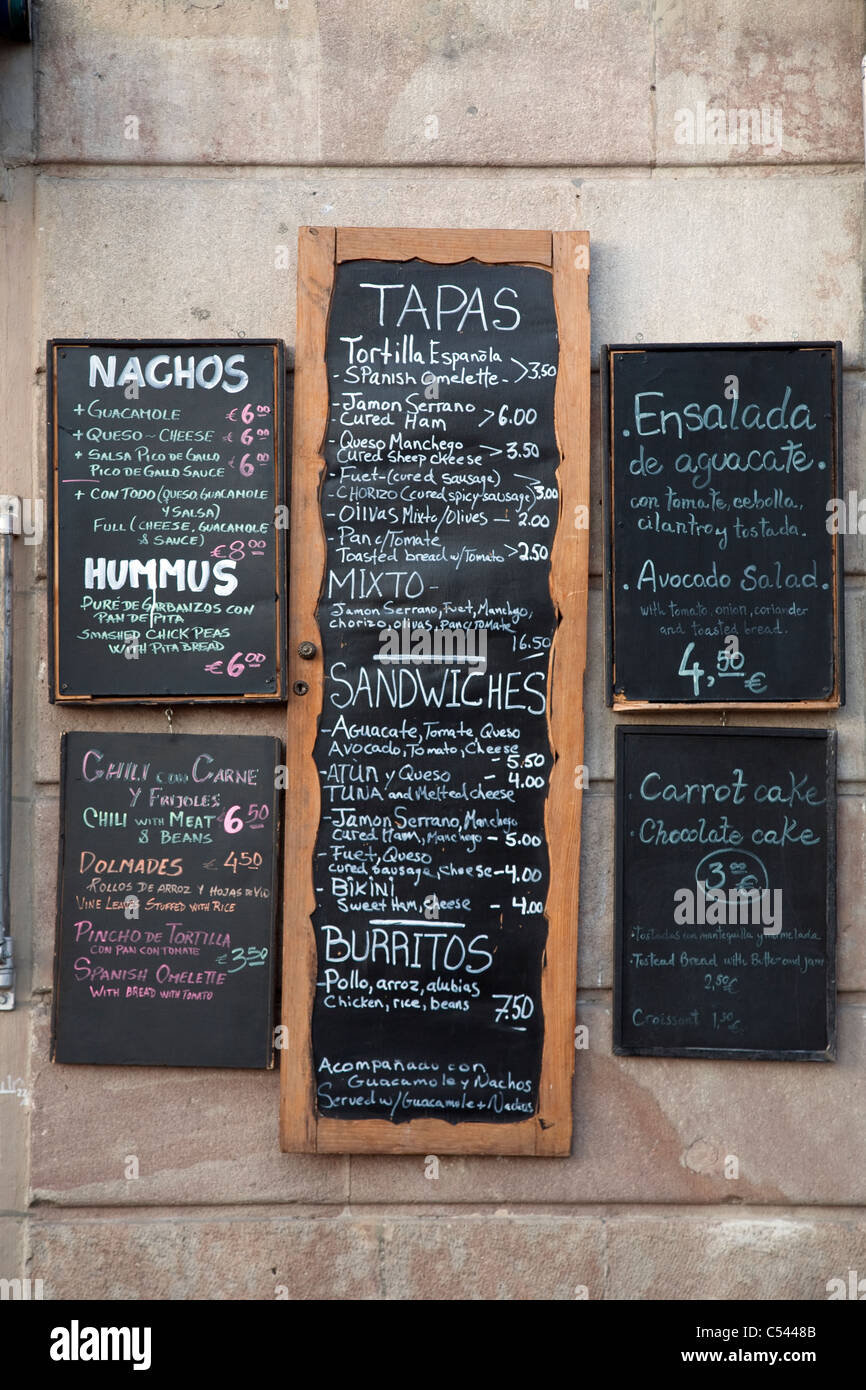 NACHOS
+ GUACAMOLE €6.00
+ QUESO ~ CHEESE €6.00
+ SALSA PICO DE GALLO
PICO DE GALLO SAUCE €6.00
+ CON TODO (QUESO, GUACAMOLE
Y SALSA)
FULL (CHEESE, GUACAMOLE
& SAUCE) €8.00
HUMMUS
PURÉ DE GARBANZOS CON
PAN DE PITA
SMASHED CHICK PEAS
WITH PITA BREAD
€6.00
CHILI CON CARNE
Y FRIJOLES
CHILI WITH MEAT
& BEANS €6.50
DOLMADES €4.50
ROLLOS DE ARROZ Y HOJAS DE VID
VINE LEAVES STUFFED WITH RICE
PINCHO DE TORTILLA
CON PAN CON TOMATE
SPANISH OMELETTE €3.50
WITH BREAD WITH TOMATO
TAPAS
Tortilla Espanõla
- SPanish Omelette - >3.50
- Jamon Serrano
Cured Ham >6.00
- Queso Manchego
Cured Sheep cheese >3.50
- Fuet-(cured sausage)
- CHORIZO (cured spicy sausage) 3.00
- Olivas Mixto/Olives - 2.00
- Pan c/Tomate
Toasted bread w/Tomato >2.50
MIXTO -
Jamon Serrano, Fuet, Manchego,
chorizo, olivas, panc/tomate
16.50
SANDWICHES
- Aguacate, Tomate, Queso
Avocado, Tomato, Cheese
- 5.50
- ATÚN y Queso - 4.00
TUNA and Melted cheese
- Jamon Serrano, Manchego
Cured Ham, Manchego - 5.00
- Fuet, Queso
cured Sausage, cheese - 4.00
- BIKINI
Sweet Ham, Cheese - 4.00
BURRITOS
- Pollo, arroz, alubias
Chicken, rice, beans 7.50
Acompañado con
Guacamole y Nachos
Served w/Guacamole + Nachos
. Ensalada
de aguacate.
con tomate, cebolla,
cilantro y tostada.
. Avocado Salad.
with tomato, onion, coriander
and toasted bread.
4,50 €
. Carrot cake
. Chocolate cake
3.00 €
. Tostadas con mantequilla y mermelada
. Tostead Bread with Butter and jam
2,50€
Croissant 1,50 €
alamy
Image ID: C5448B
www.alamy.com